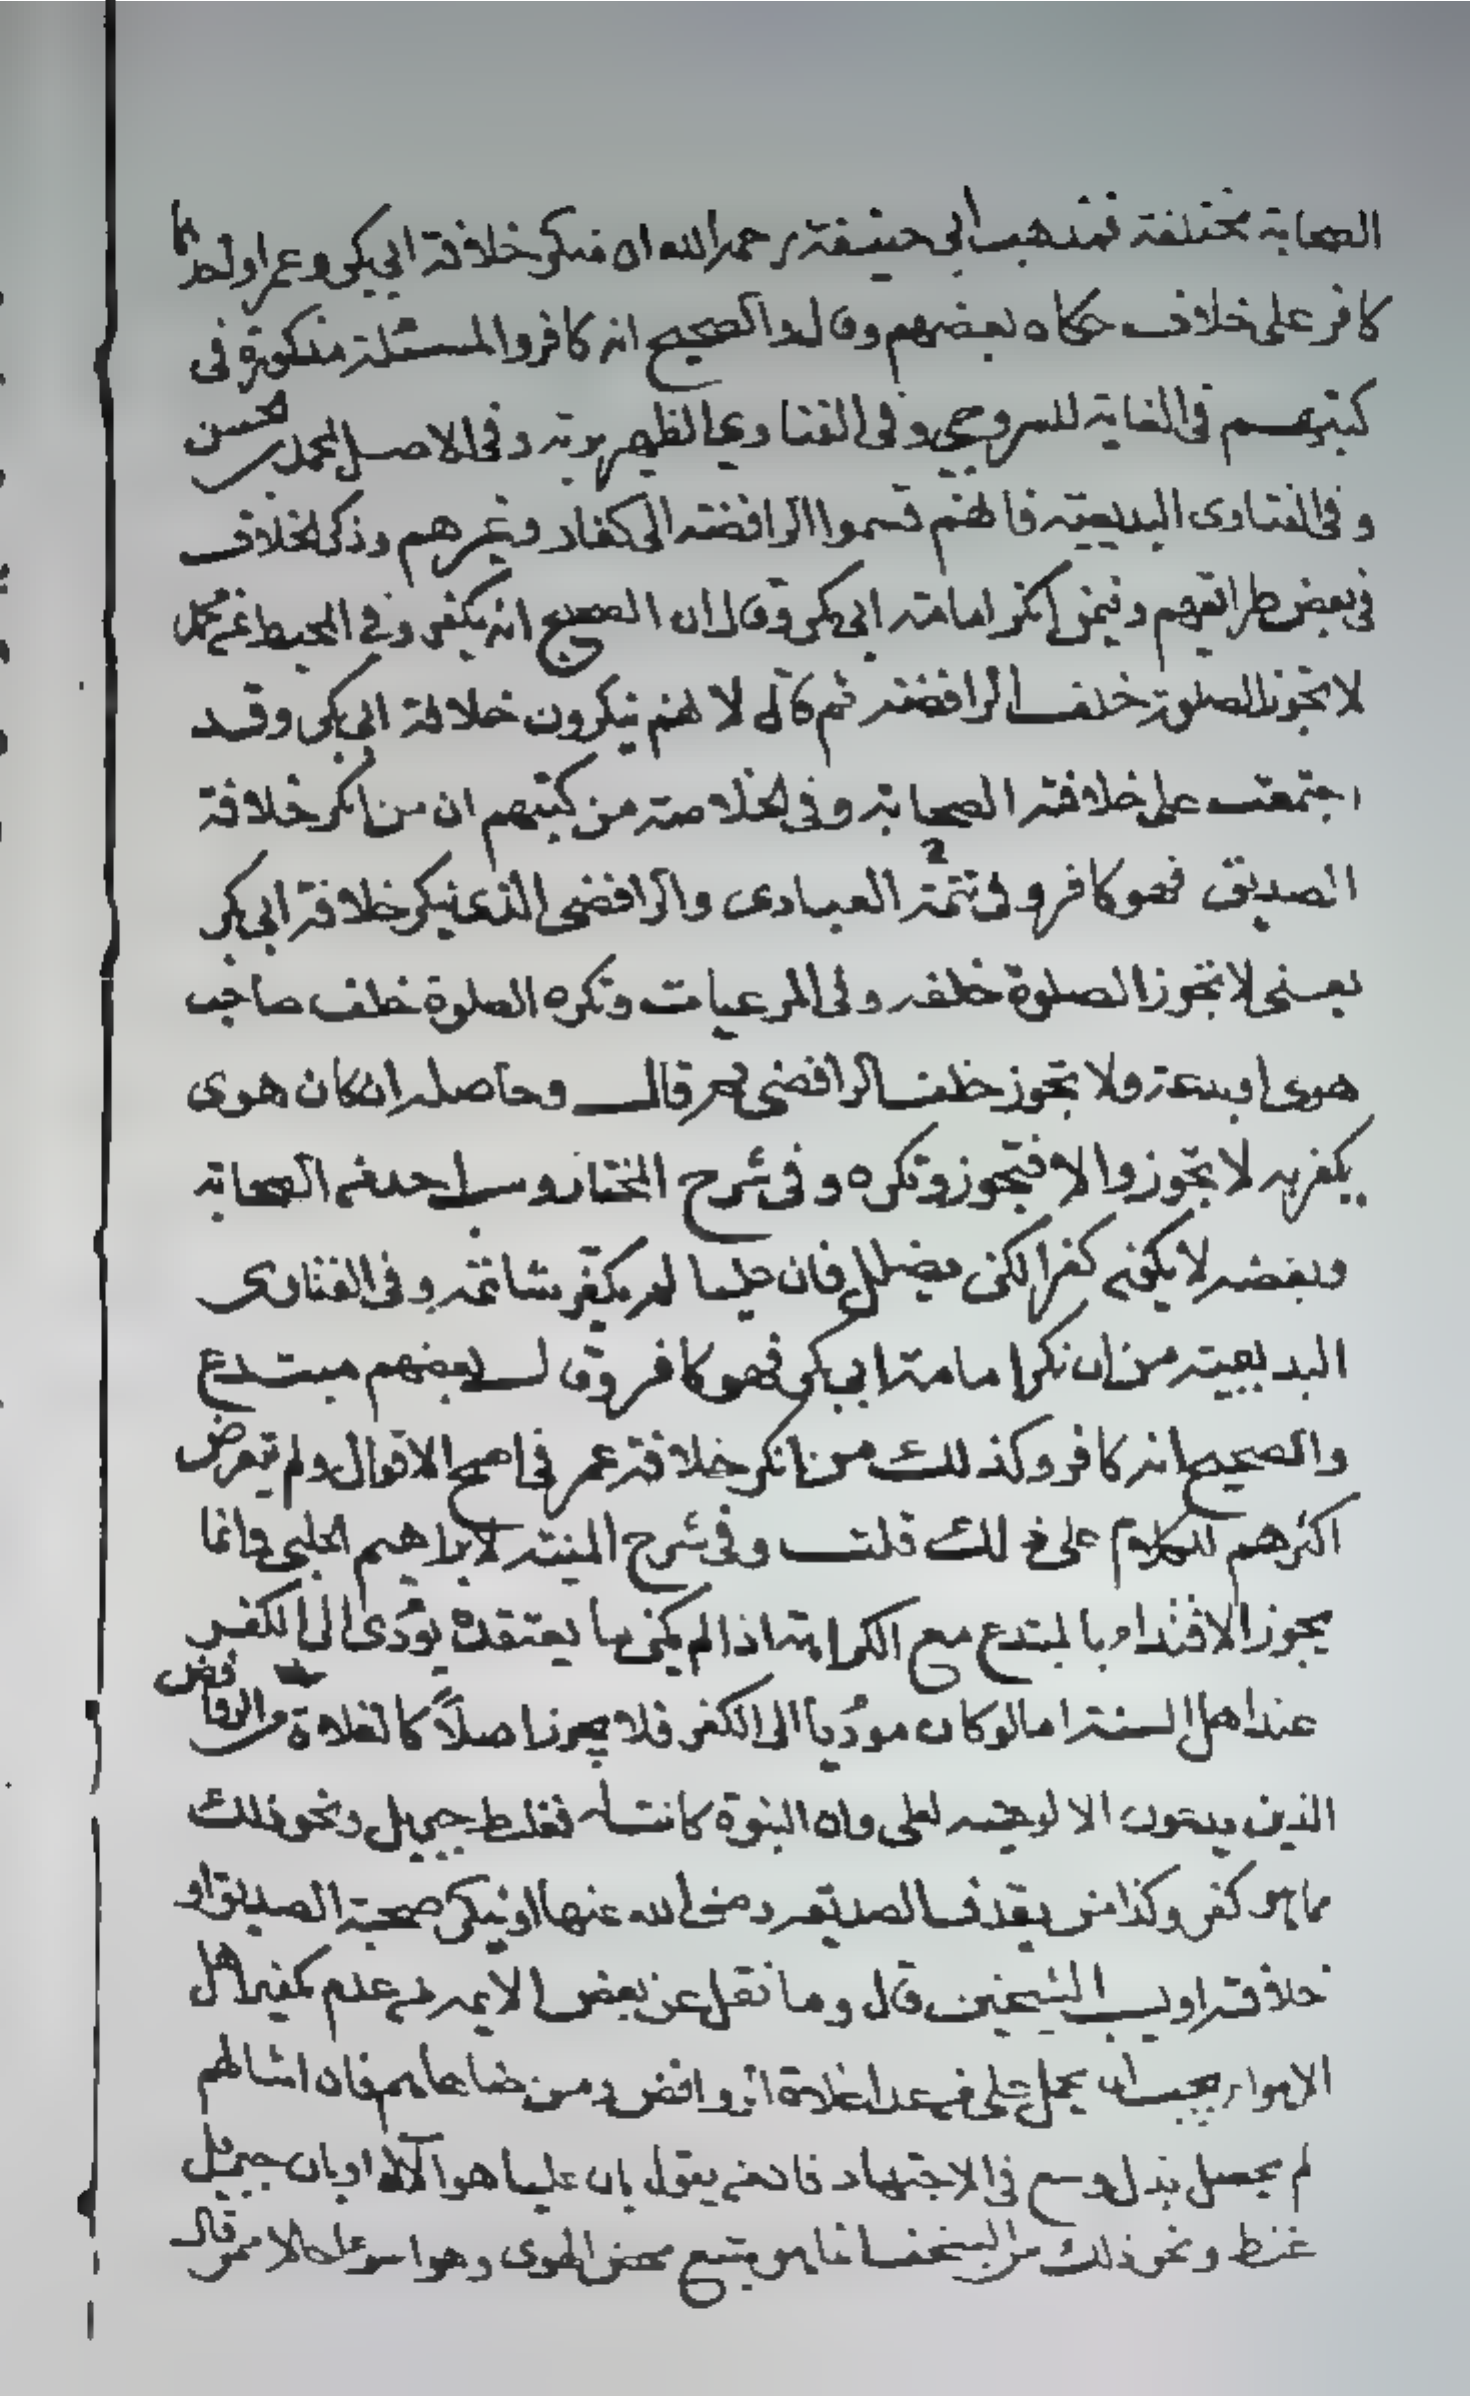 الصحابة مختلفة فمذهب ابى حنيفة رحمه الله ان منكر خلافة ابى بكر وعمر او احدهما
كافر على خلاف حكاه بعضهم وقالوا الصحيح انه كافر والمسئلة مذكورة فى
كتبهم فى الغاية للسروجى وفى الفتاوى الظهيرية وفى الاصل لمحمد بن الحسن
وفى الفتاوى البديعية فانهم قسموا الرافضة الى كفار وغيرهم وذكر الخلاف
فى بعض طوائفهم وفيمن انكر امامة ابى بكر وقال ان الصحيح انه يكفر وفى المحيط عن محمد
لا تجوز الصلوة خلف الرافضة ثم قال لانهم ينكرون خلافة ابى بكر وقد
اجتمعت على خلافته الصحابة وفى الخلاصة من كتبهم ان من انكر خلافة
الصديق فهو كافر وفى تتمة العبادى والرافضى الذى ينكر خلافة ابى بكر
يعنى لا تجوز الصلوة خلفه وفى المرعيات وتكره الصلوة خلف صاحب
هوى او بدعة ولا تجوز خلف الرافضى ثم قال وحاصله ان كان هوى
يكفر به لا تجوز والا فتجوز وتكره وفى شرح المختار وسب احد من الصحابة
وبغضه لا يكون كفرا لكن يضلل فان عليا لم يكفر شاتمه وفى الفتاوى
البديعية من انكر امامة ابى بكر فهو كافر وقال بعضهم مبتدع
والصحيح انه كافر وكذلك من انكر خلافة عمر فى اصح الاقوال ولم يتعرض
اكثرهم للكلام على ذلك قلت وفى شرح المنية لابراهيم الحلبى وانما
يجوز الاقتداء بالمبتدع مع الكراهة اذا لم يكن ما يعتقده يؤدى الى الكفر
عند اهل السنة اما لو كان مؤديا الى الكفر فلا يجوز اصلاً كالغلاة من الروافض
الذين يدعون الالوهية لعلى وان النبوة كانت له فغلط جبريل ونحو ذلك
مما هو كفر وكذا من يقذف الصديقة رضى الله عنها او ينكر صحبة الصديق او
خلافته او يسب الشيخين قال وما نقل عن بعض الايمة من عدم تكفير اهل
الاهواء يجب ان يحمل على من عدا غلاة الروافض ومن ضاهاهم فان امثالهم
لم يحصل بذل وسع فى الاجتهاد فان من يقول بان عليا هو الاله او بان جبريل
غلط ونحو ذلك من السخف انما هو يتبع محض الهوى وهو اسوء حالا ممن قال